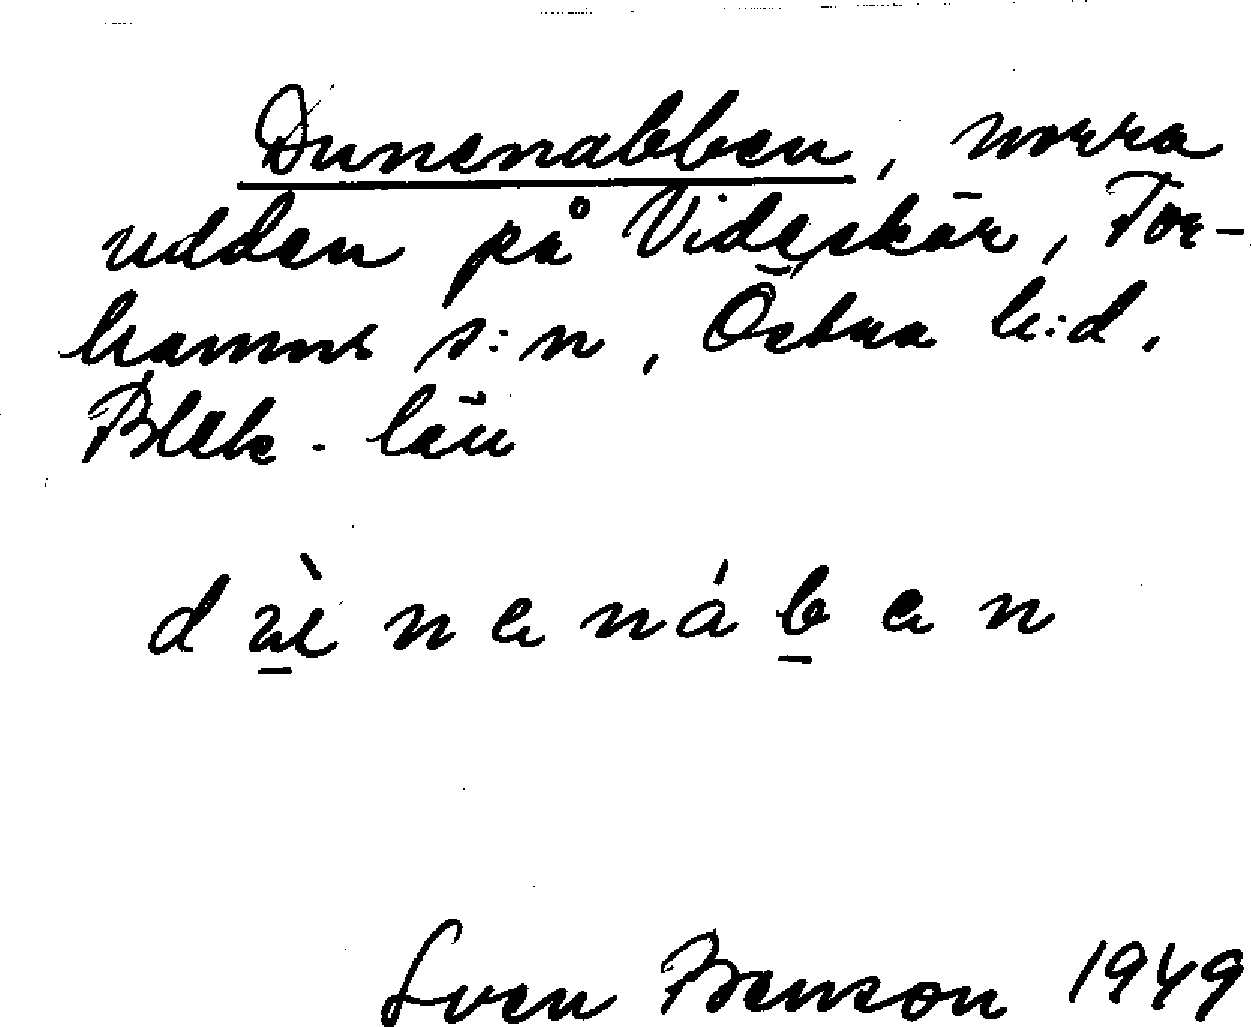 Dunenabben, norra
udden på Videskär, Tor-
hamns s:n, Östra h:d,
Blek. län
Sven Benson 1949